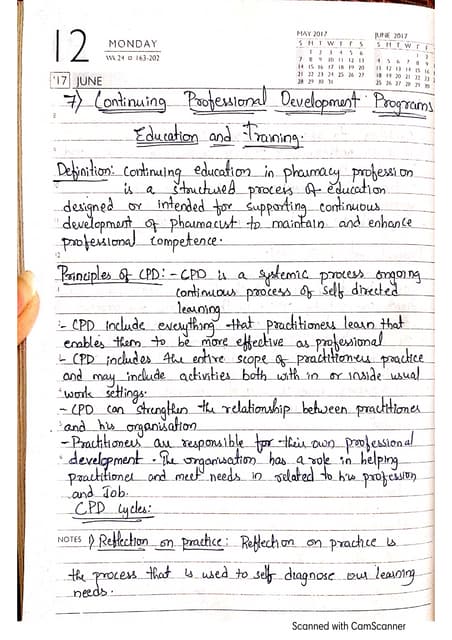 12 MONDAY
WK 24 □ 163-202
'17 JUNE
MAY 2017
S M T W T F S
1 2 3 4 5 6
7 8 9 10 11 12 13
14 15 16 17 18 19 20
21 22 23 24 25 26 27
28 29 30 31
JUNE 2017
S M T W T F
7) Continuing Professional Development Programs
Education and Training.
Definition: continuing education in pharmacy profession
is a structured process of education
designed or intended for supporting continuous
development of pharmacist to maintain and enhance
professional competence.
Principles of CPD:- CPD is a systemic process ongoing
continuous process of self directed
learning
:- CPD include everything that practitioners learn that
enables them to be more effective as professional
- CPD includes the entire scope of practitioners practice
and may include activities both with in or inside usual
work settings.
- CPD can strengthen the relationship between practitioner
and his organisation
- Practitioners are responsible for their own professional
development. The organisation has a role in helping
practitioner and meet needs in related to his profession
and Job.
CPD cycles:
NOTES 1) Reflection on practice: Reflection on practice is
the process that is used to self diagnose our learning
needs.
Scanned with CamScanner